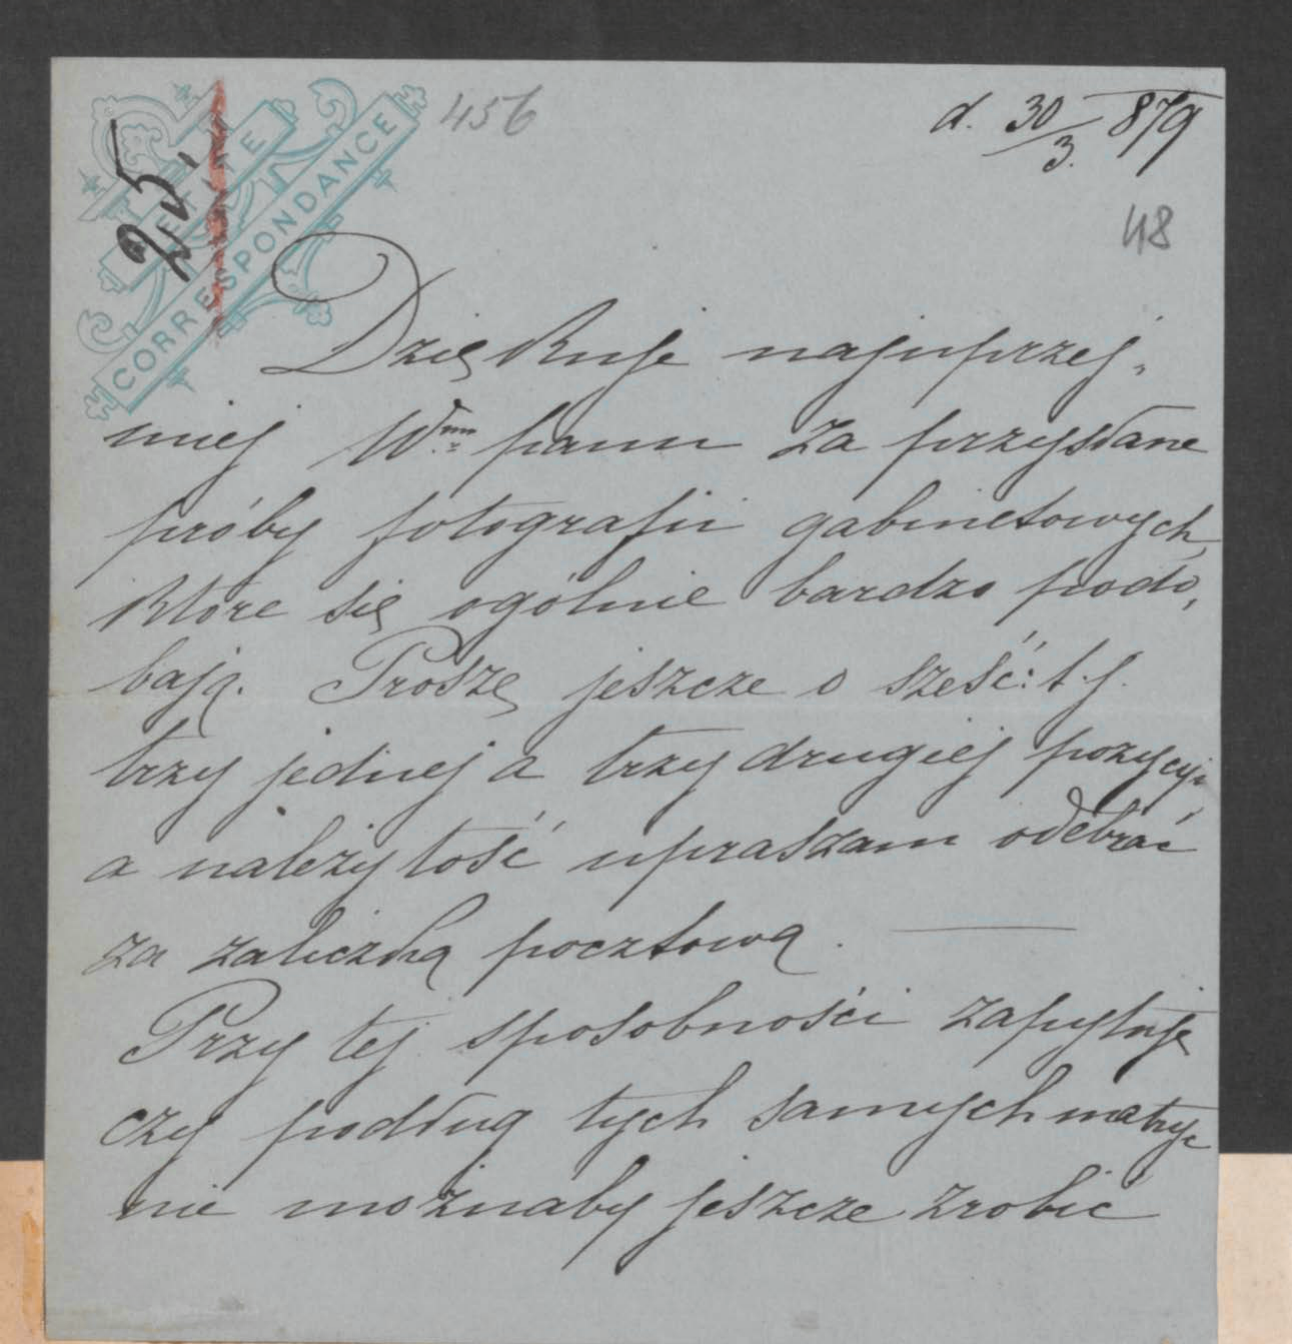 456
d. 30/3. 879
25,
PETITE
CORRESPONDANCE
48
Dziękuje najuprzej,
miej Wmu panu za przysłane
próby fotografii gabinetowych,
które się ogólnie bardzo podo,
bają. Proszę jeszcze o sześć: t. j.
trzy jednej a trzy drugiej pozycyi,
a należytość upraszam odebrać
za zaliczką pocztową. —
Przy tej sposobności zapytuję
czy podług tych samych matryc
nie możnaby jeszcze zrobić